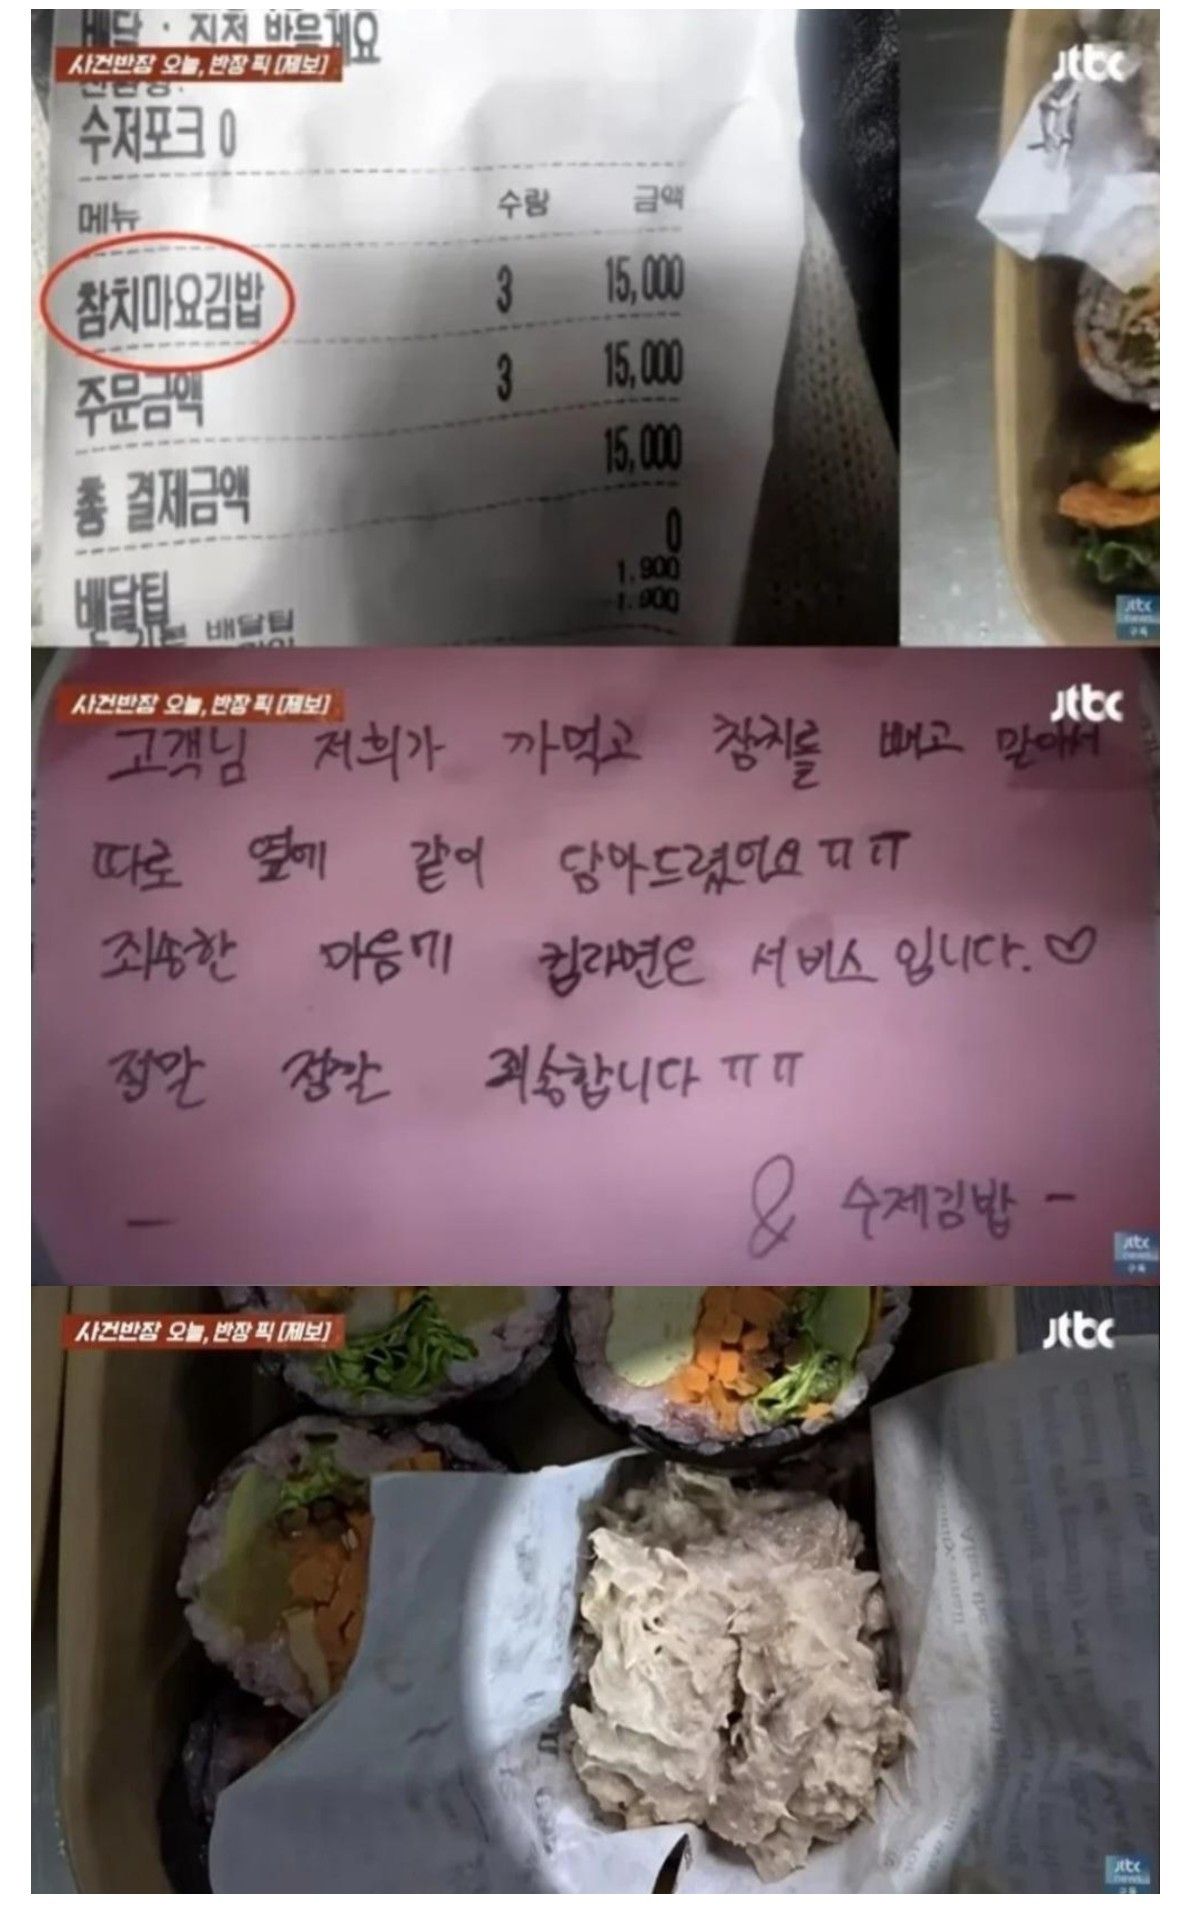 배달 · 직접 받을게요
사건반장 오늘, 반장 픽 [제보]
jtbc
수저포크 0
메뉴 수량 금액
참치마요김밥 3 15,000
주문금액 3 15,000
총 결제금액 15,000
배달팁 0
1,900
배달팁 -1,900
jtbc
news
구독
사건반장 오늘, 반장 픽 [제보]
jtbc
고객님 저희가 까먹고 참치를 빼고 말아서
따로 옆에 같이 담아드렸어요ㅠㅠ
죄송한 마음에 컵라면은 서비스입니다.♡
정말 정말 죄송합니다ㅠㅠ
& 수제김밥 -
jtbc
news
구독
사건반장 오늘, 반장 픽 [제보]
jtbc
jtbc
news
구독